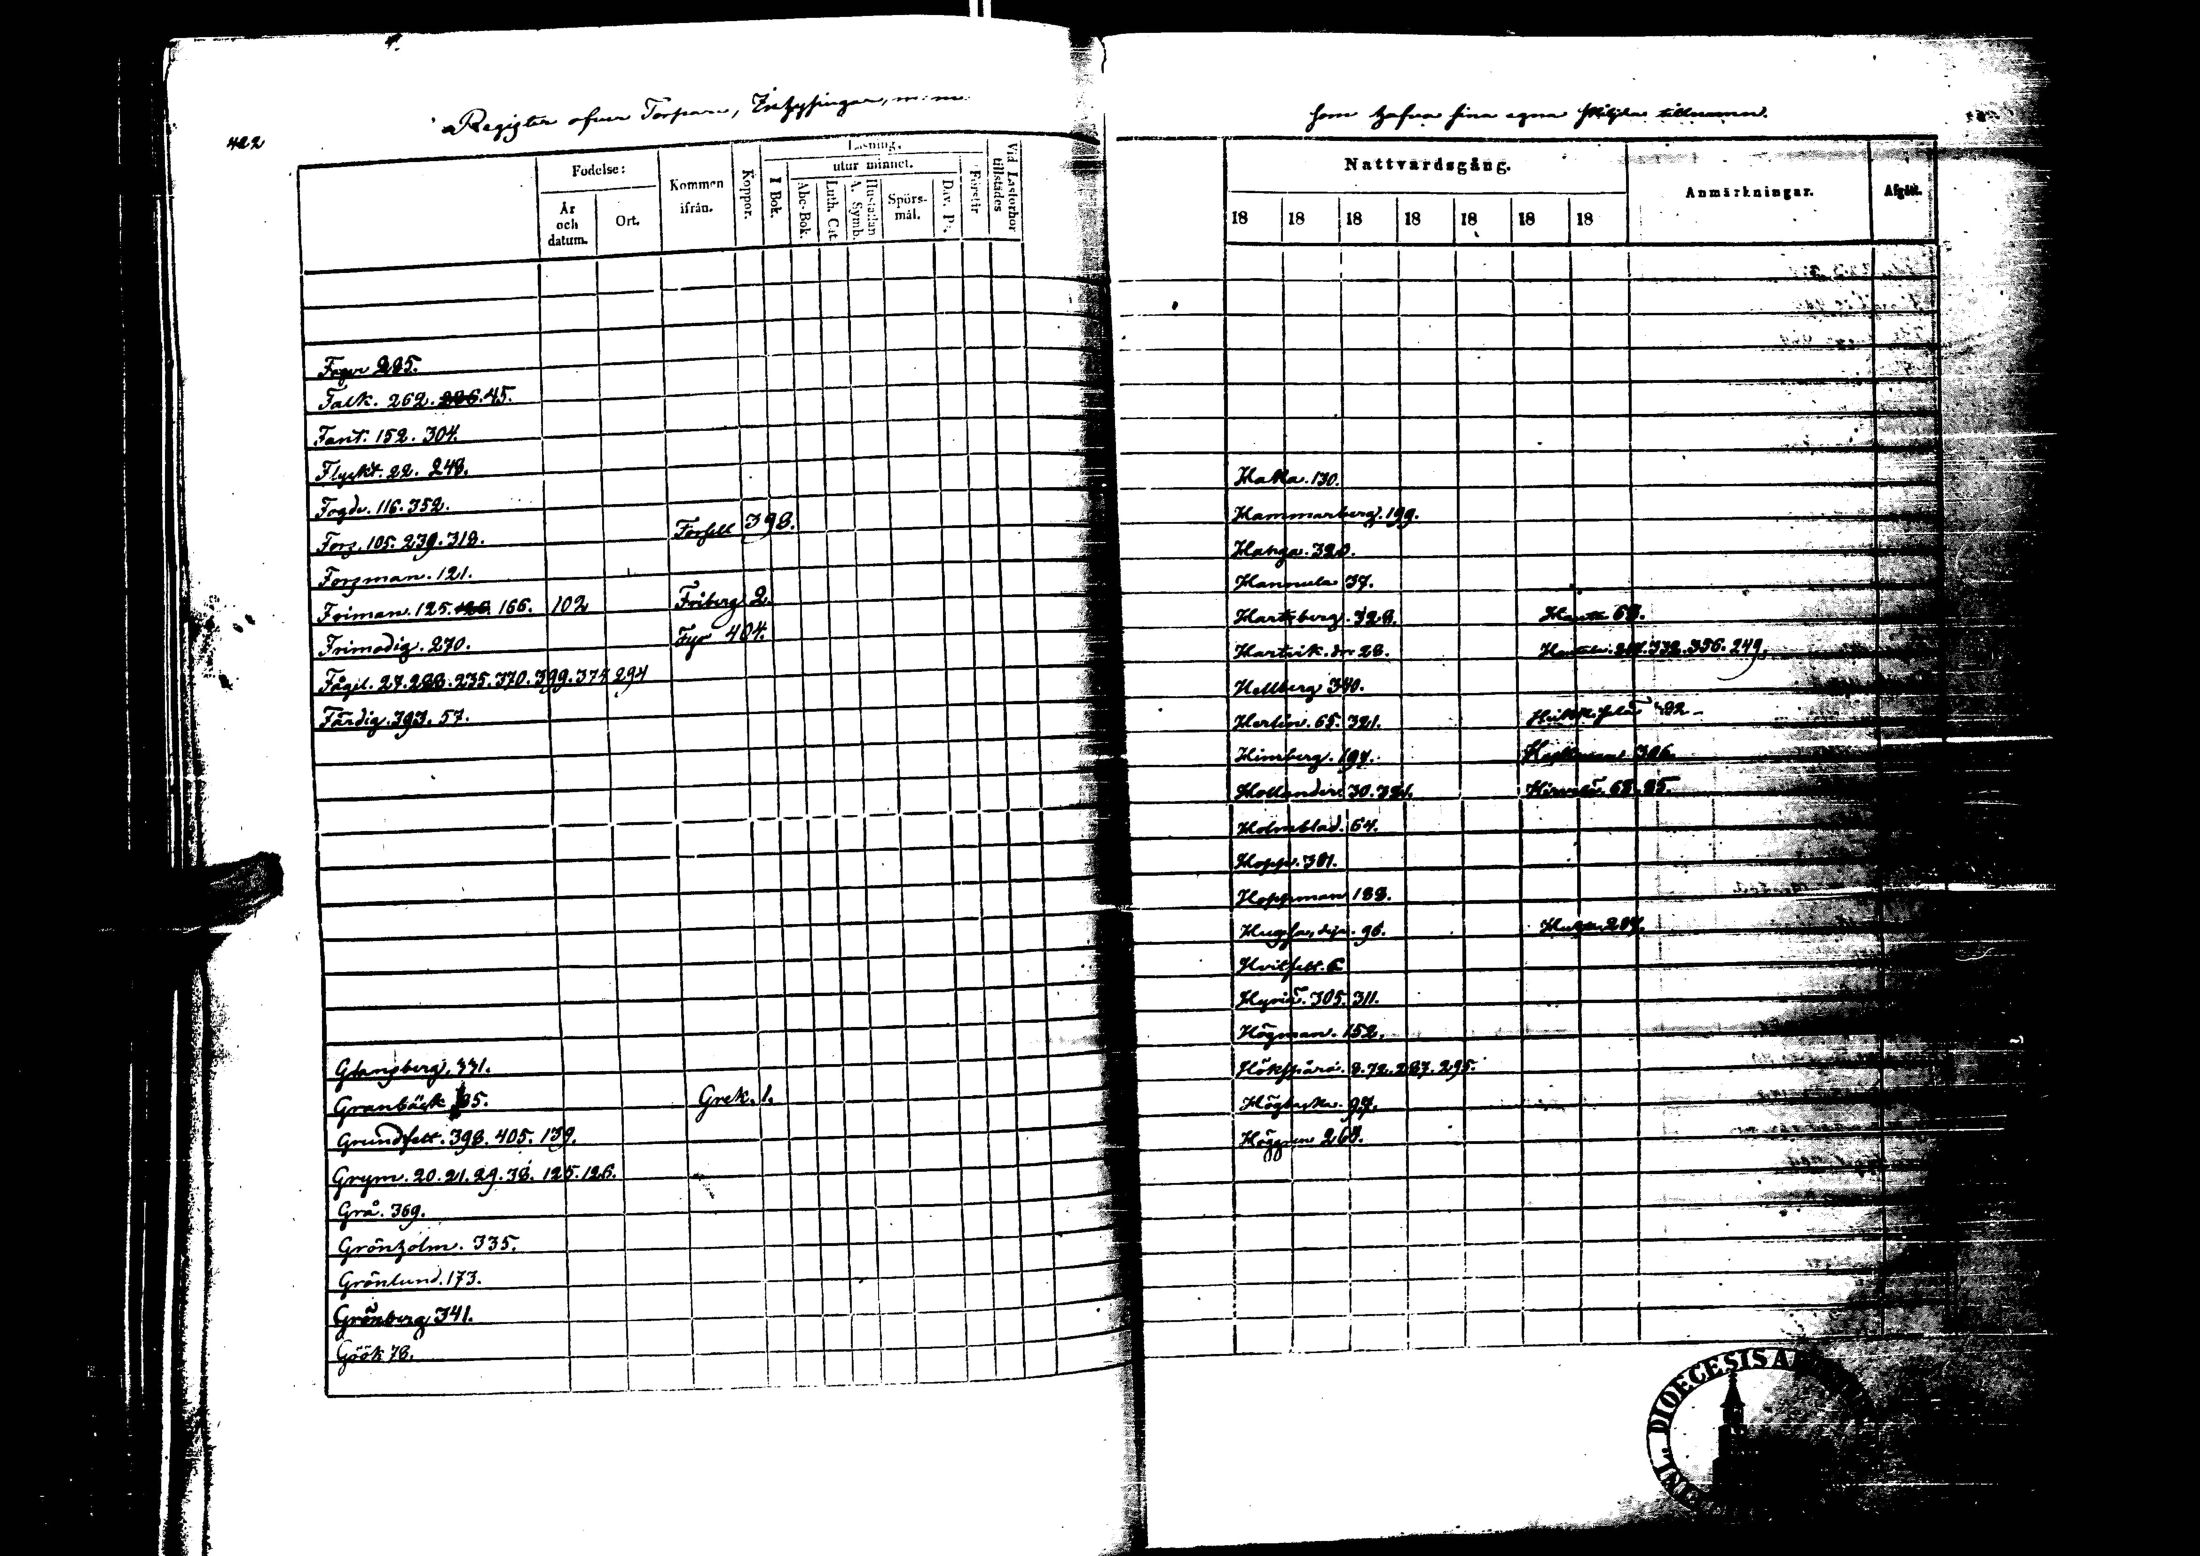 422
Register ofver Torpare, Inhysingar, m:m
Födelse:
År och datum.
Ort.
Kommen ifrån.
Koppor.
Läsning.
I Bok.
utur minnet.
Abc-Bok.
Luth. Cat.
Hustaflan A. Symb.
Spörsmål.
Dav. Ps.
Förstår
Vid Läsförhör tillstädes
Fager 295.
Falk. 262. 226. 45.
Fant. 152. 304.
Flyckt. 22. 248.
Fogde. 116. 352.
Fors. 105. 239. 318. Forsell 398.
Forsman. 121.
Friman. 125. 126. 166. 102 Friberg 2.
Frimodig. 270. Fyr 404.
Fågel. 27. 233. 235. 370. 399. 374 294
Färdig. 393. 57.
Glansberg. 331.
Granbäck 35. Grek. 1.
Grundfelt. 398. 405. 139.
Grym. 20. 21. 29. 38. 125. 126.
Grå. 369.
Grönholm. 335.
Grönlund. 173.
Grönberg 341.
Göök 78.
som hafva sina egna skiljda tillnamn.
Nattvardsgång.
Anmärkningar.
Afgått.
18 18 18 18 18 18 18
Hakka. 130.
Hammarberg. 199.
Hanga. 320.
Hannula 37.
Hartsberg. 328. 68.
Hartvik. 28. 332. 356. 249.
Hellberg 340.
Herlin. 65. 321.
Himberg. 197. 306.
Hollander 30. 321. Hirvelä. 68. 85.
Holmblad. 64.
Hopp. 381.
Hoppman 188.
96. 207.
Hvitfelt. 6
305. 311.
Högman. 152.
8. 72. 287. 295.
97.
Höggren 268.
DIOECESIS